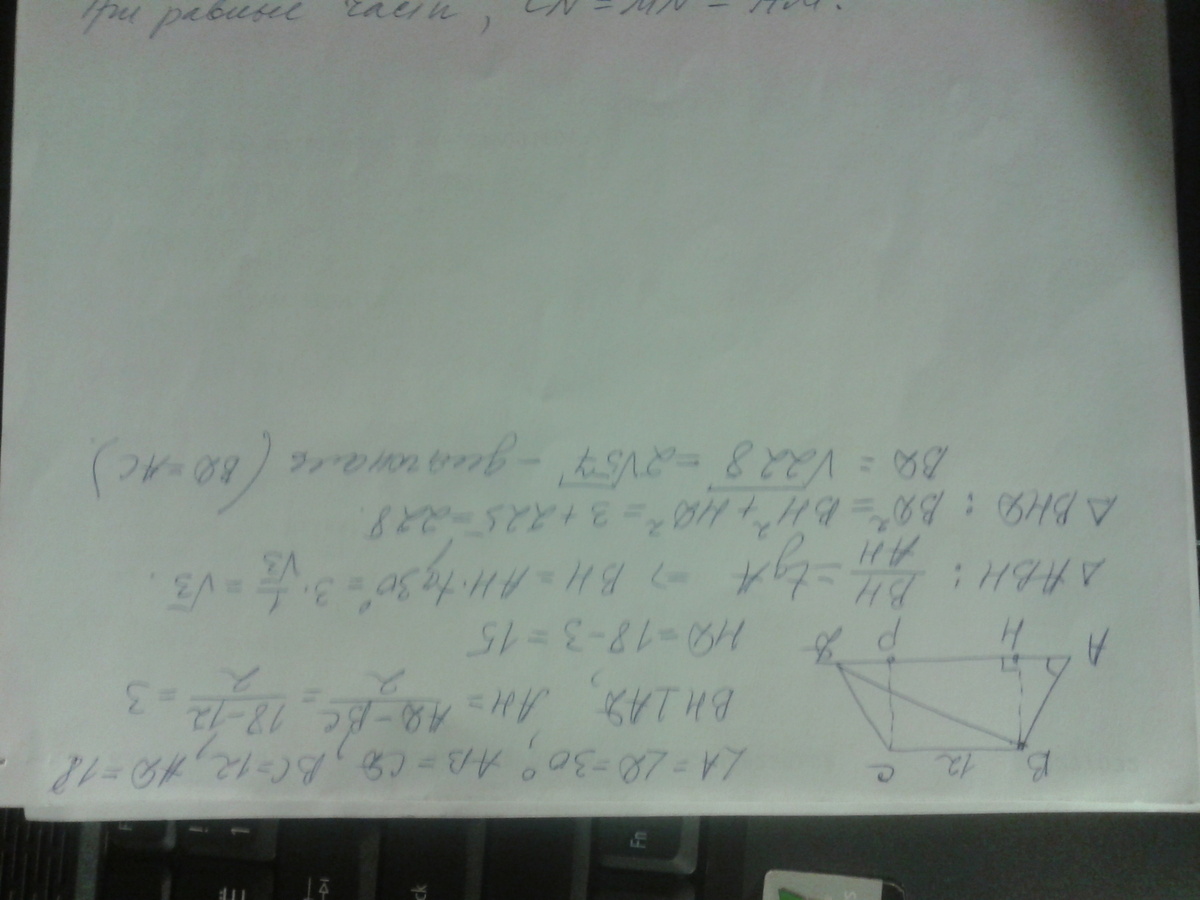 три равные части, CN = MN = AM.
∠A = ∠D = 30°, AB = CD, BC = 12, AD = 18
BH ⊥ AD, AH = (AD − BC)/2 = (18 − 12)/2 = 3
HD = 18 − 3 = 15
△ABH: BH/AH = tgA ⇒ BH = AH · tg30° = 3 · 1/√3 = √3.
△BHD: BD² = BH² + HD² = 3 + 225 = 228
BD = √228 = 2√57 – диагональ (BD = AC)
B 12 C
A H P D
Fn
! 1